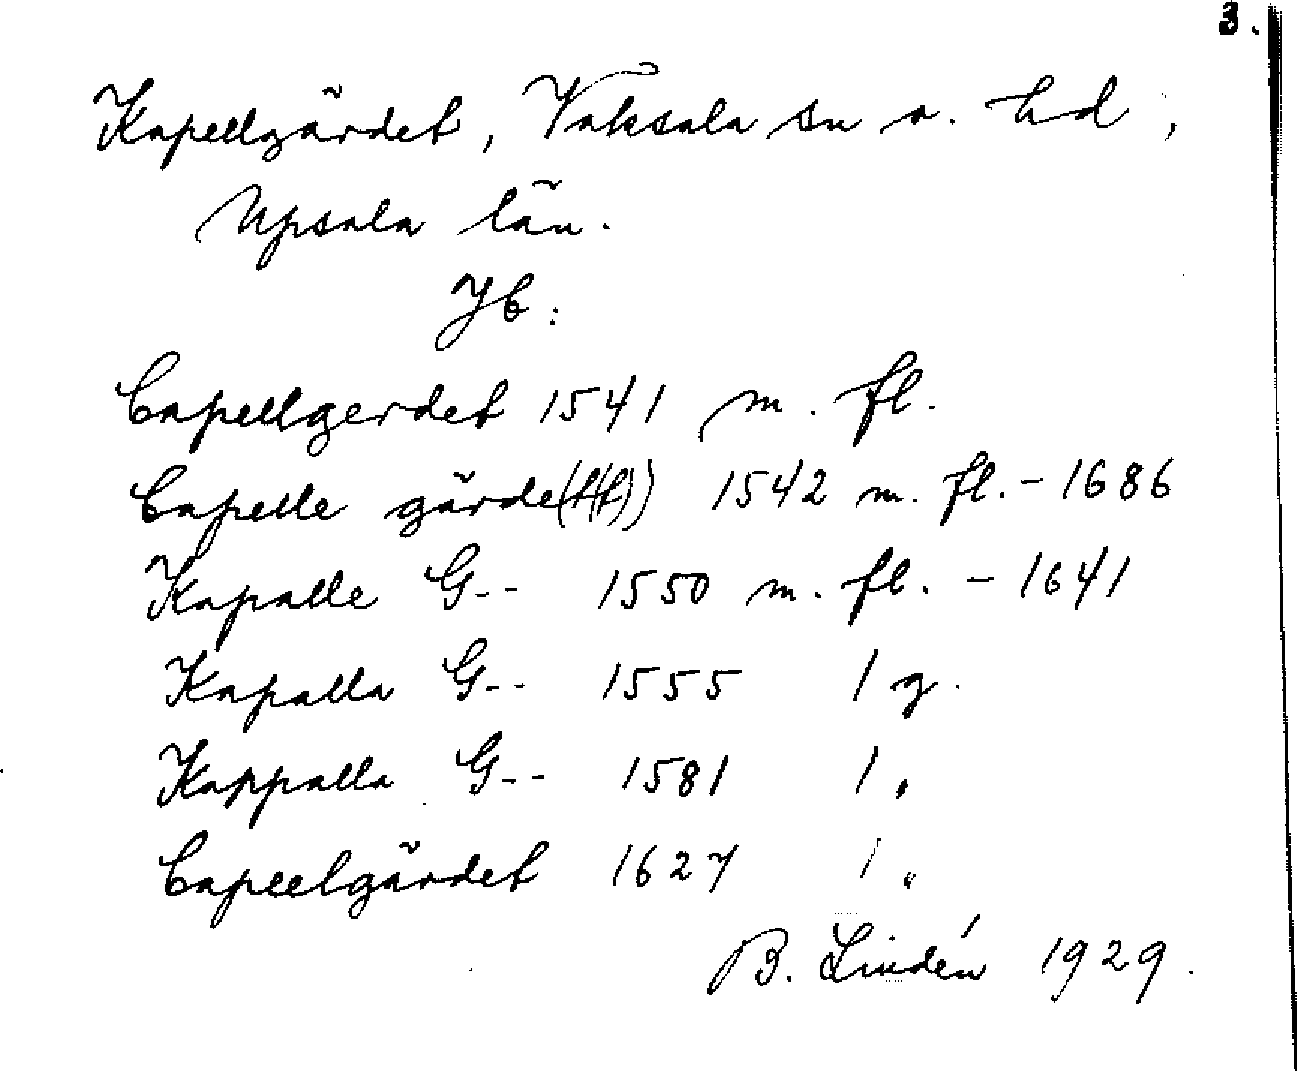 3.
Kapellgärdet, Vaksala sn o. hd,
Upsala län.
Jb:
Capellgerdet 1541 m. fl.
Capelle gärde(t(t)) 1542 m. fl. - 1686
Kapalle G-- 1550 m. fl. - 1641
Kapalla G-- 1555 1 g.
Kappalla G-- 1581 1 "
Capeelgärdet 1627 1 "
B. Lindén 1929.